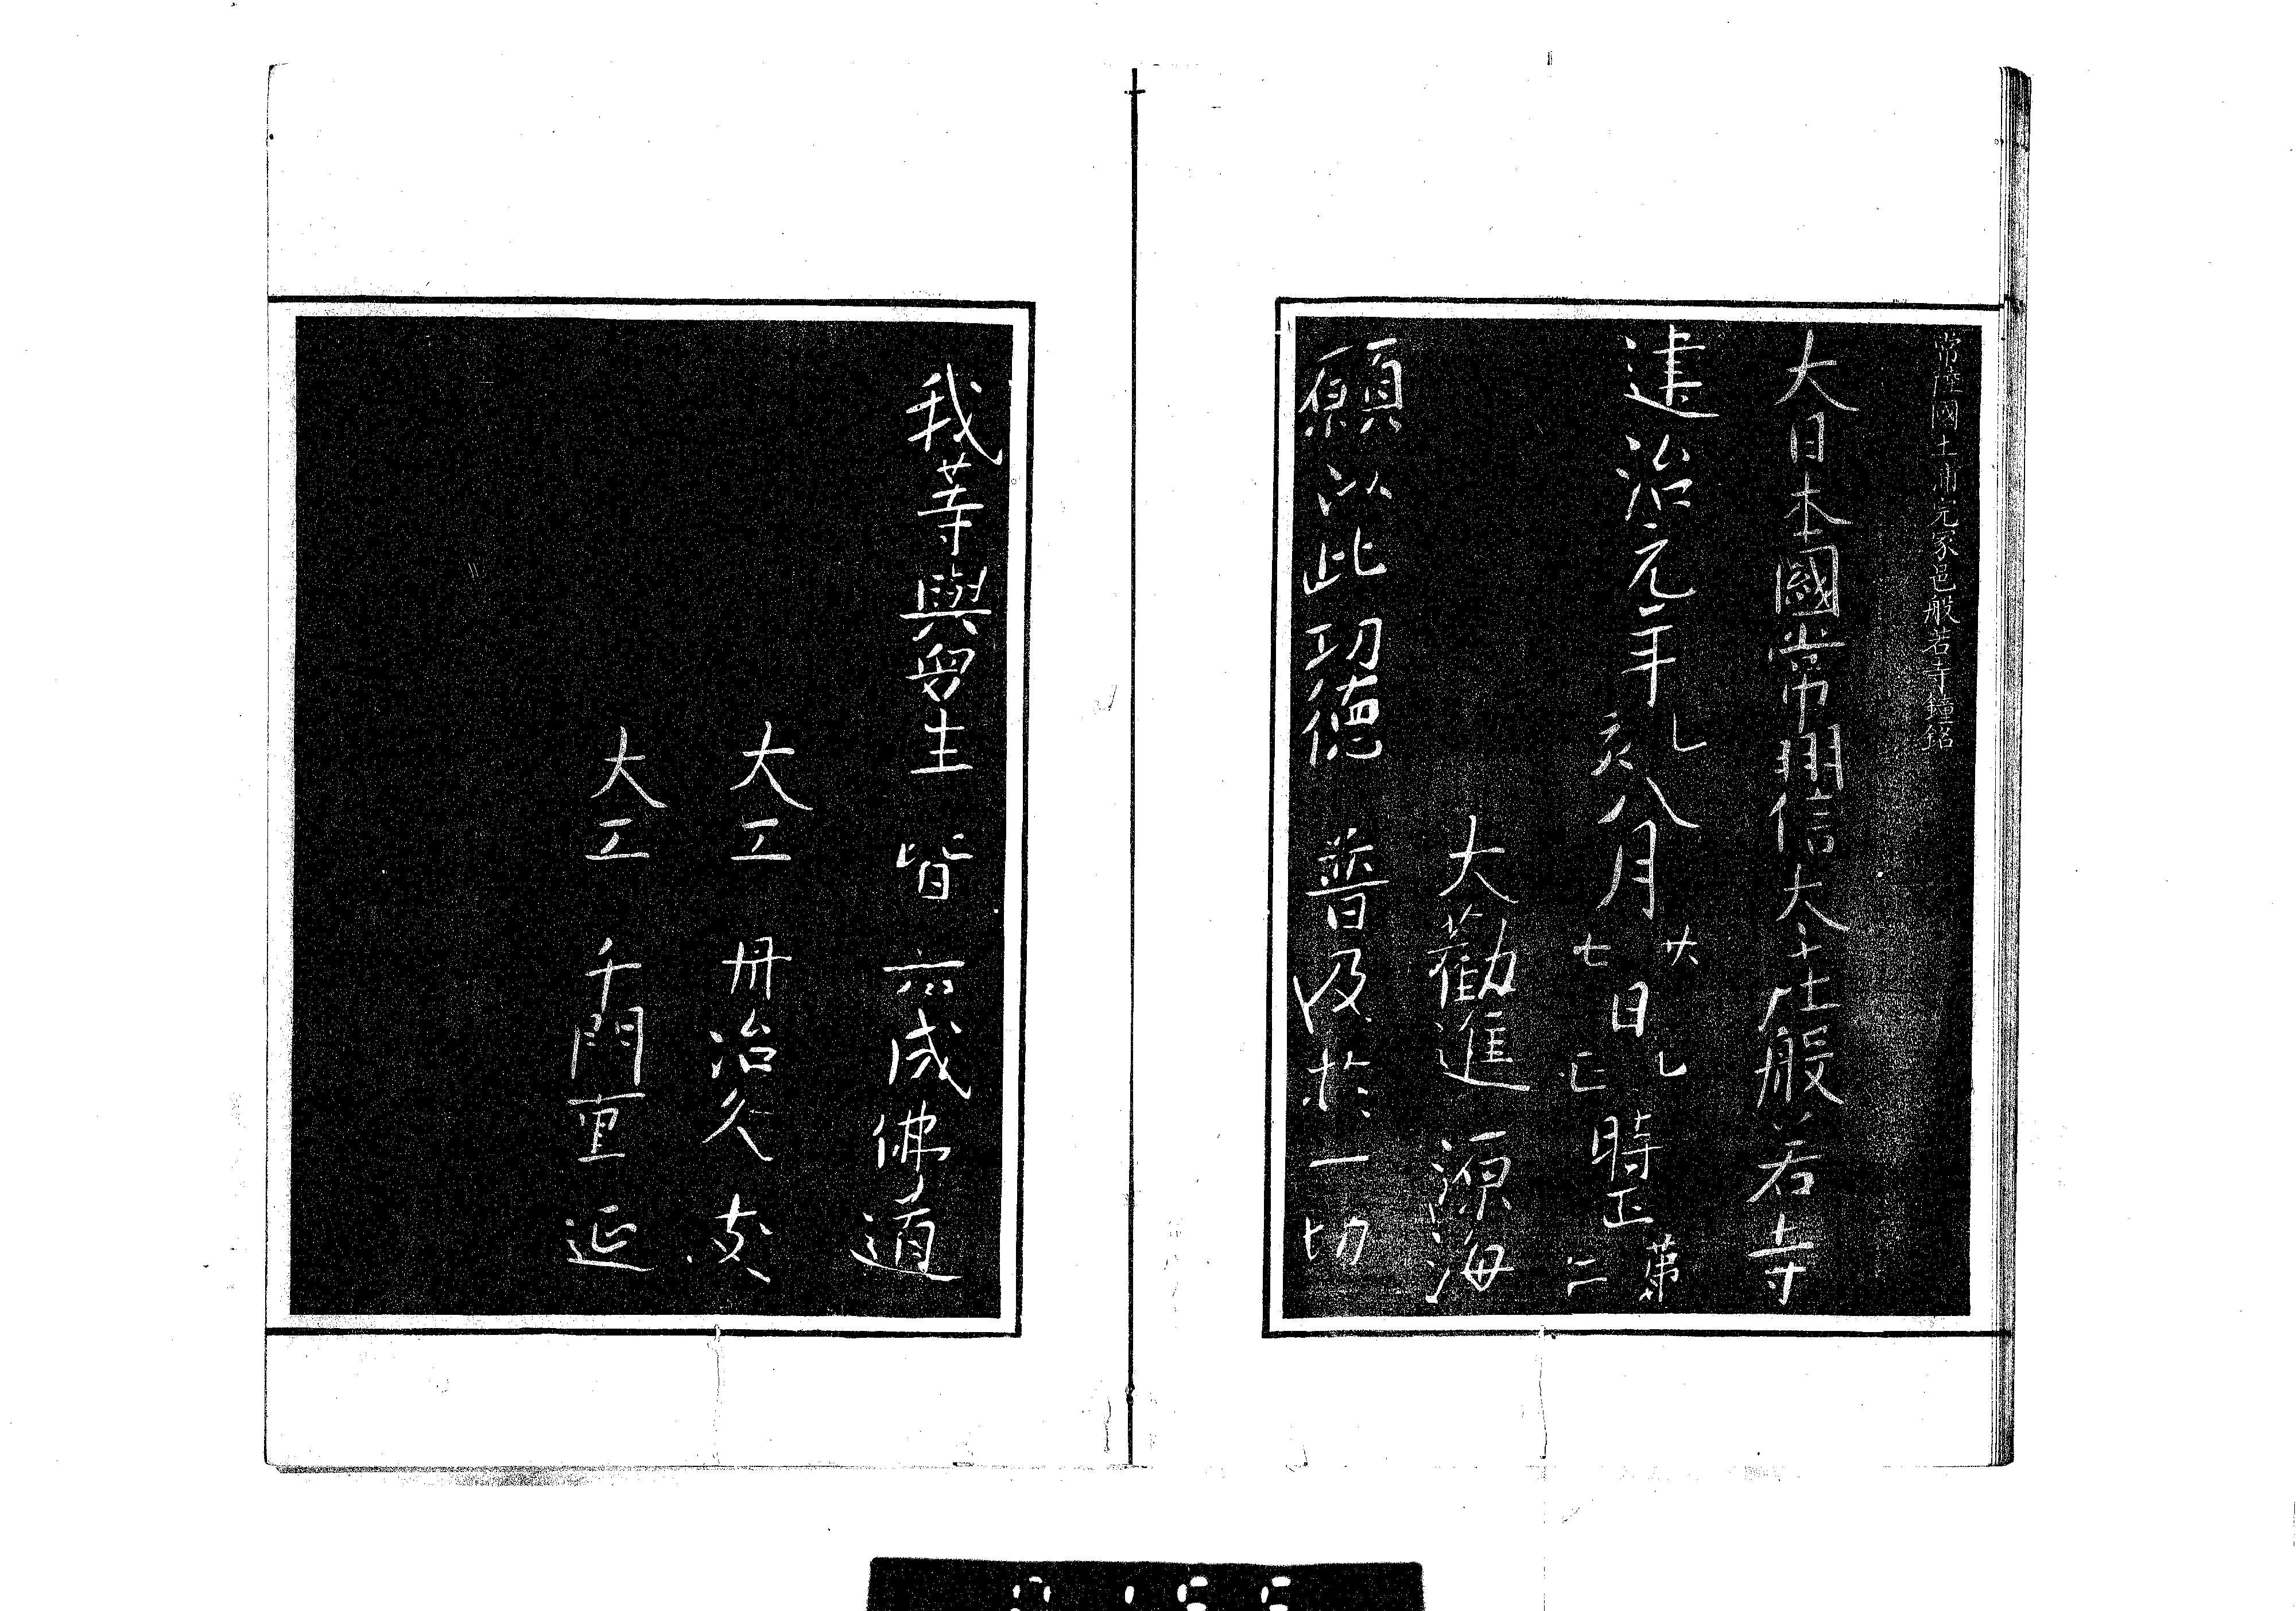 常陸國土浦宍冢邑般若寺鐘銘
大日本國常州信太庄般若寺
建治元年乙亥八月廿七日乙巳時正第二
大勸進源海
願以此功德普及於一切
我等與眾生皆共成佛道
大工丹治久友
大工千門重延